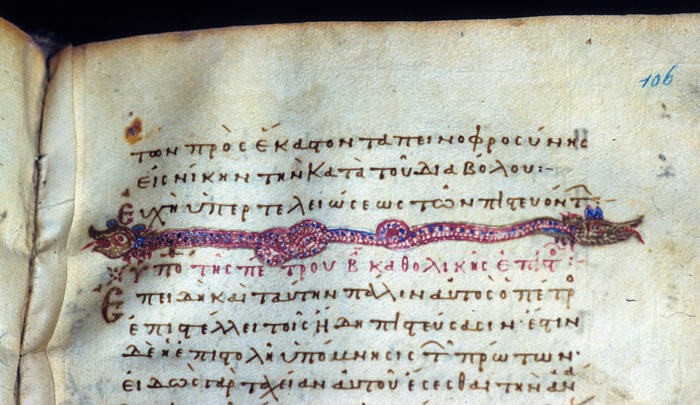 106
των προς ἑκαστον ταπεινοφροσύνης
εἰς νίκην την κατα τοῦ διαβόλου:-
Εὐχὴ ὑπερ τελειώσεως των πιστευόντ:-
ὑπό της πέτρου β καθολικῆς ἐπιστο
Ἐπειδη και ταύτην πάλιν αυτος ὁ πέτρ
ἐπιστέλλει τοις ἤδη πιστεύσασιν· ἔστιν
δὲ ἡ ἐπιστολὴ ὑπόμνησις τῶν πρώτων·
εἰδὼς γαρ ταχεῖαν ἀυτοῦ ἔσεσθαι την ἀνα